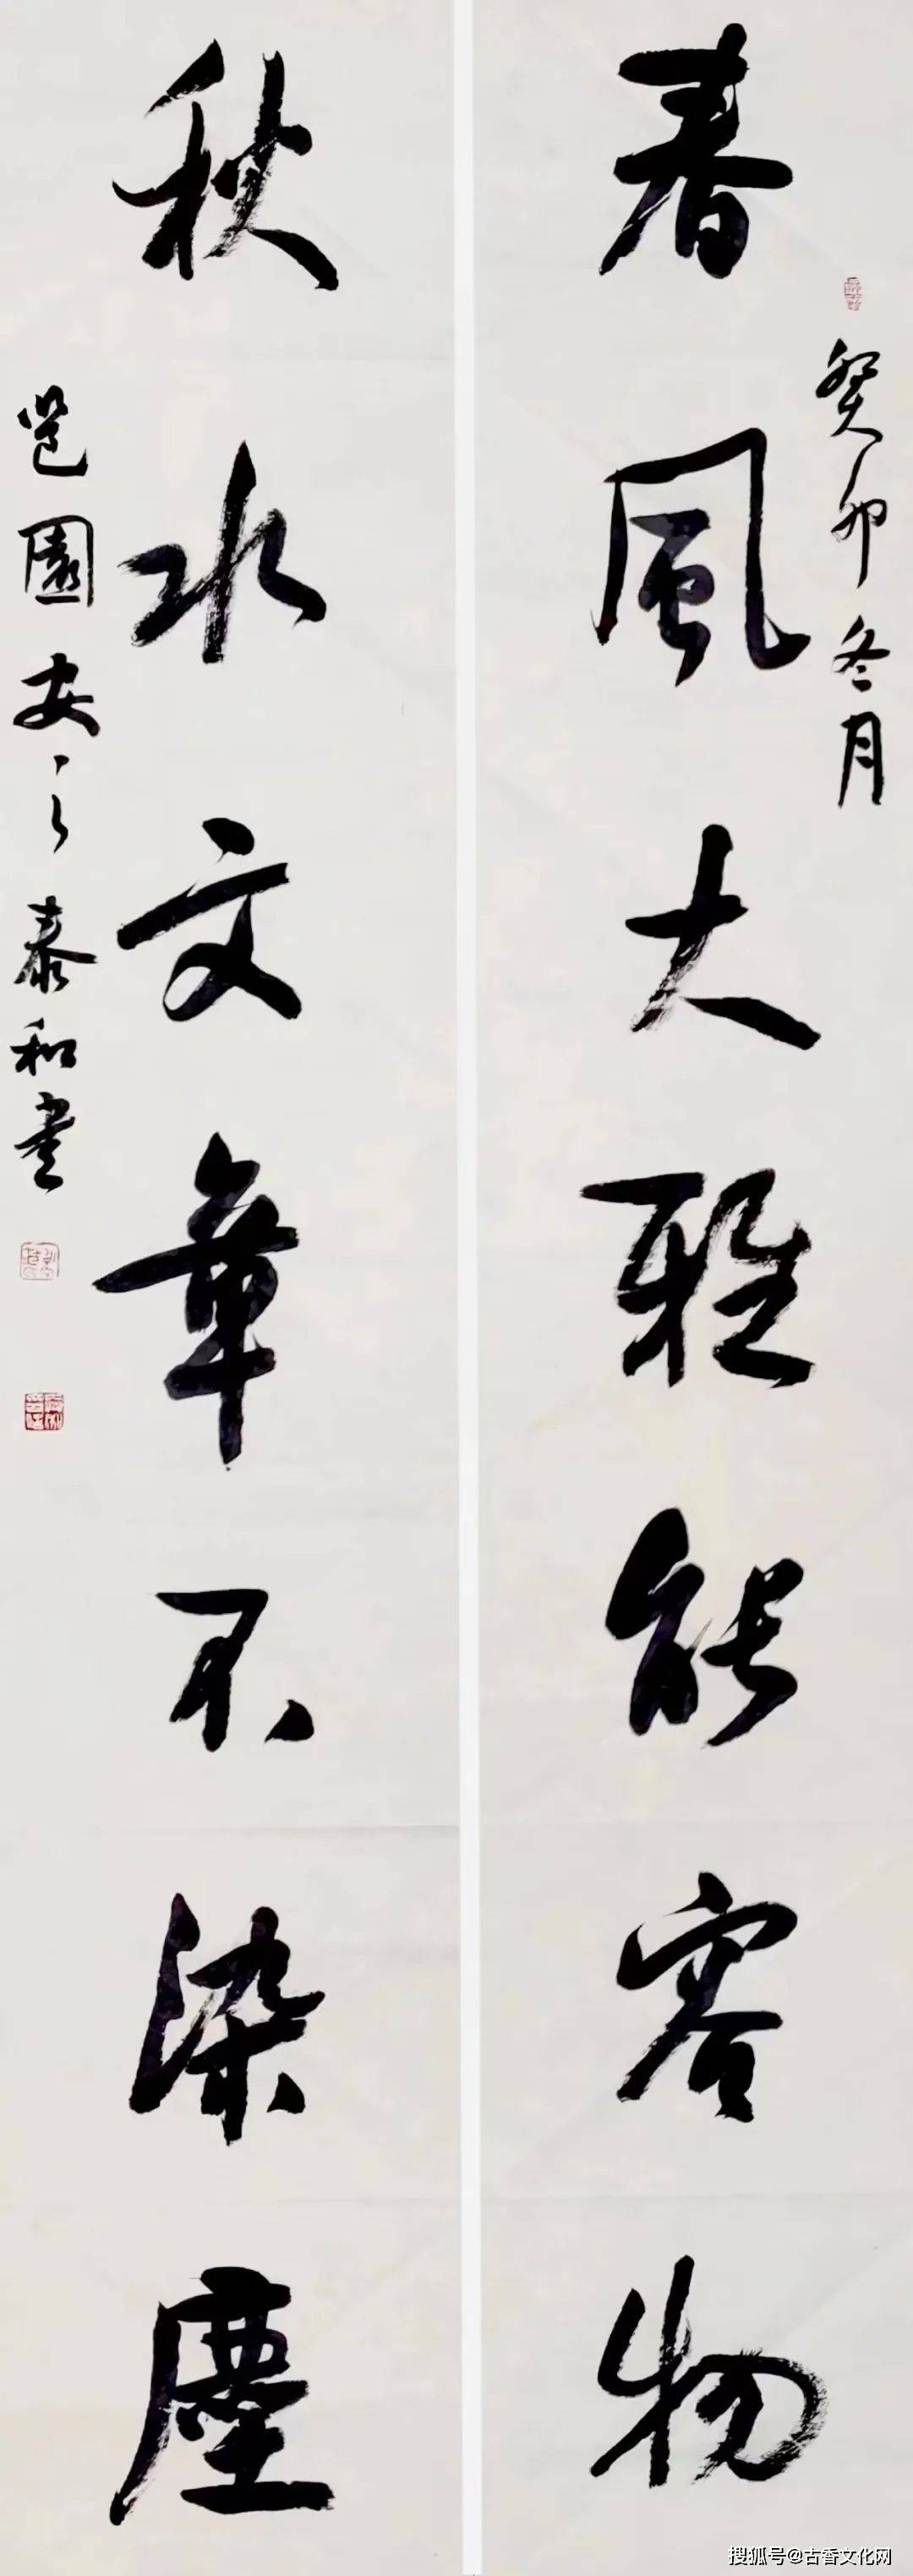 癸卯冬月
春風大雅能容物
秋水文章不染塵
園安之泰和書
搜狐号@古香文化网